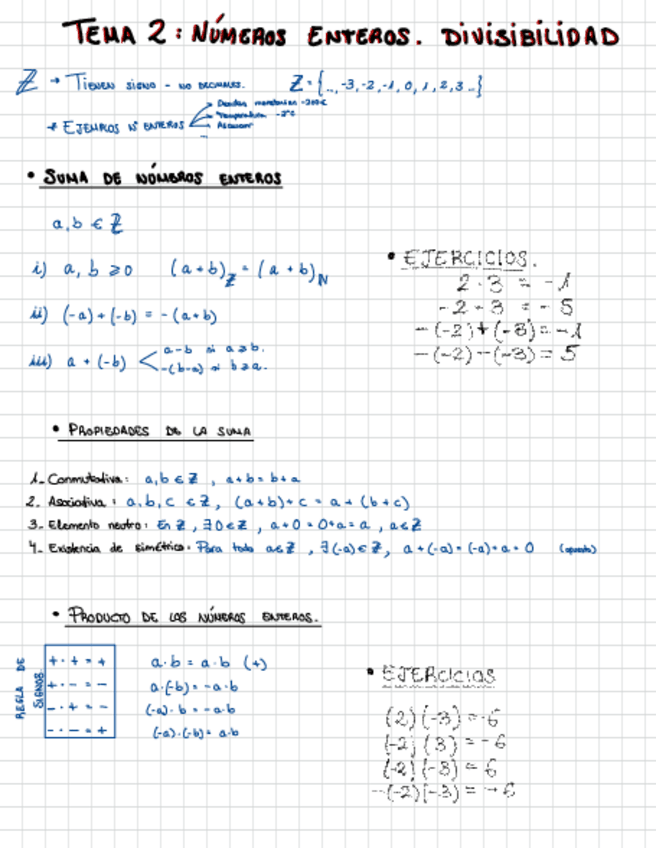 TEMA 2: NÚMEROS ENTEROS. DIVISIBILIDAD
ℤ → TIENEN SIGNO - NO DECIMALES. ℤ = {.., -3, -2, -1, 0, 1, 2, 3 ..}
→ EJEMPLOS Nº ENTEROS
Deudas monetarias -200€
Temperatura -2°C
Ascensor
• SUMA DE NÚMEROS ENTEROS
a, b ∈ ℤ
i) a, b ≥ 0 (a + b)ℤ = (a + b)ℕ
ii) (-a) + (-b) = - (a+b)
iii) a + (-b)
a-b si a≥b.
-(b-a) si b≥a.
• EJERCICIOS.
2 - 3 = -1
-2 - 3 = -5
-(-2)+(-3) = -1
-(-2)-(-3) = 5
• PROPIEDADES DE LA SUMA
1- Conmutativa: a, b ∈ ℤ, a+b = b+a
2. Asociativa: a, b, c ∈ ℤ, (a+b)+c = a+(b+c)
3- Elemento neutro: En ℤ, ∃ 0 ∈ ℤ, a+0 = 0+a = a, a∈ℤ
4- Existencia de simétrico: Para todo a∈ℤ, ∃(-a)∈ℤ, a+(-a) = (-a)+a = 0 (opuesto)
• PRODUCTO DE LOS NÚMEROS ENTEROS.
REGLA DE SIGNOS.
+ · + = +
+ · - = -
- · + = -
- · - = +
a·b = a·b (+)
a·(-b) = -a·b
(-a)·b = -a·b
(-a)·(-b) = a·b
• EJERCICIOS
(2)(-3) = -6
(-2)(3) = -6
(-2)(-3) = 6
-(-2)(-3) = -6